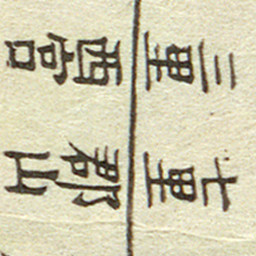 三里
西宮
七里
郡山